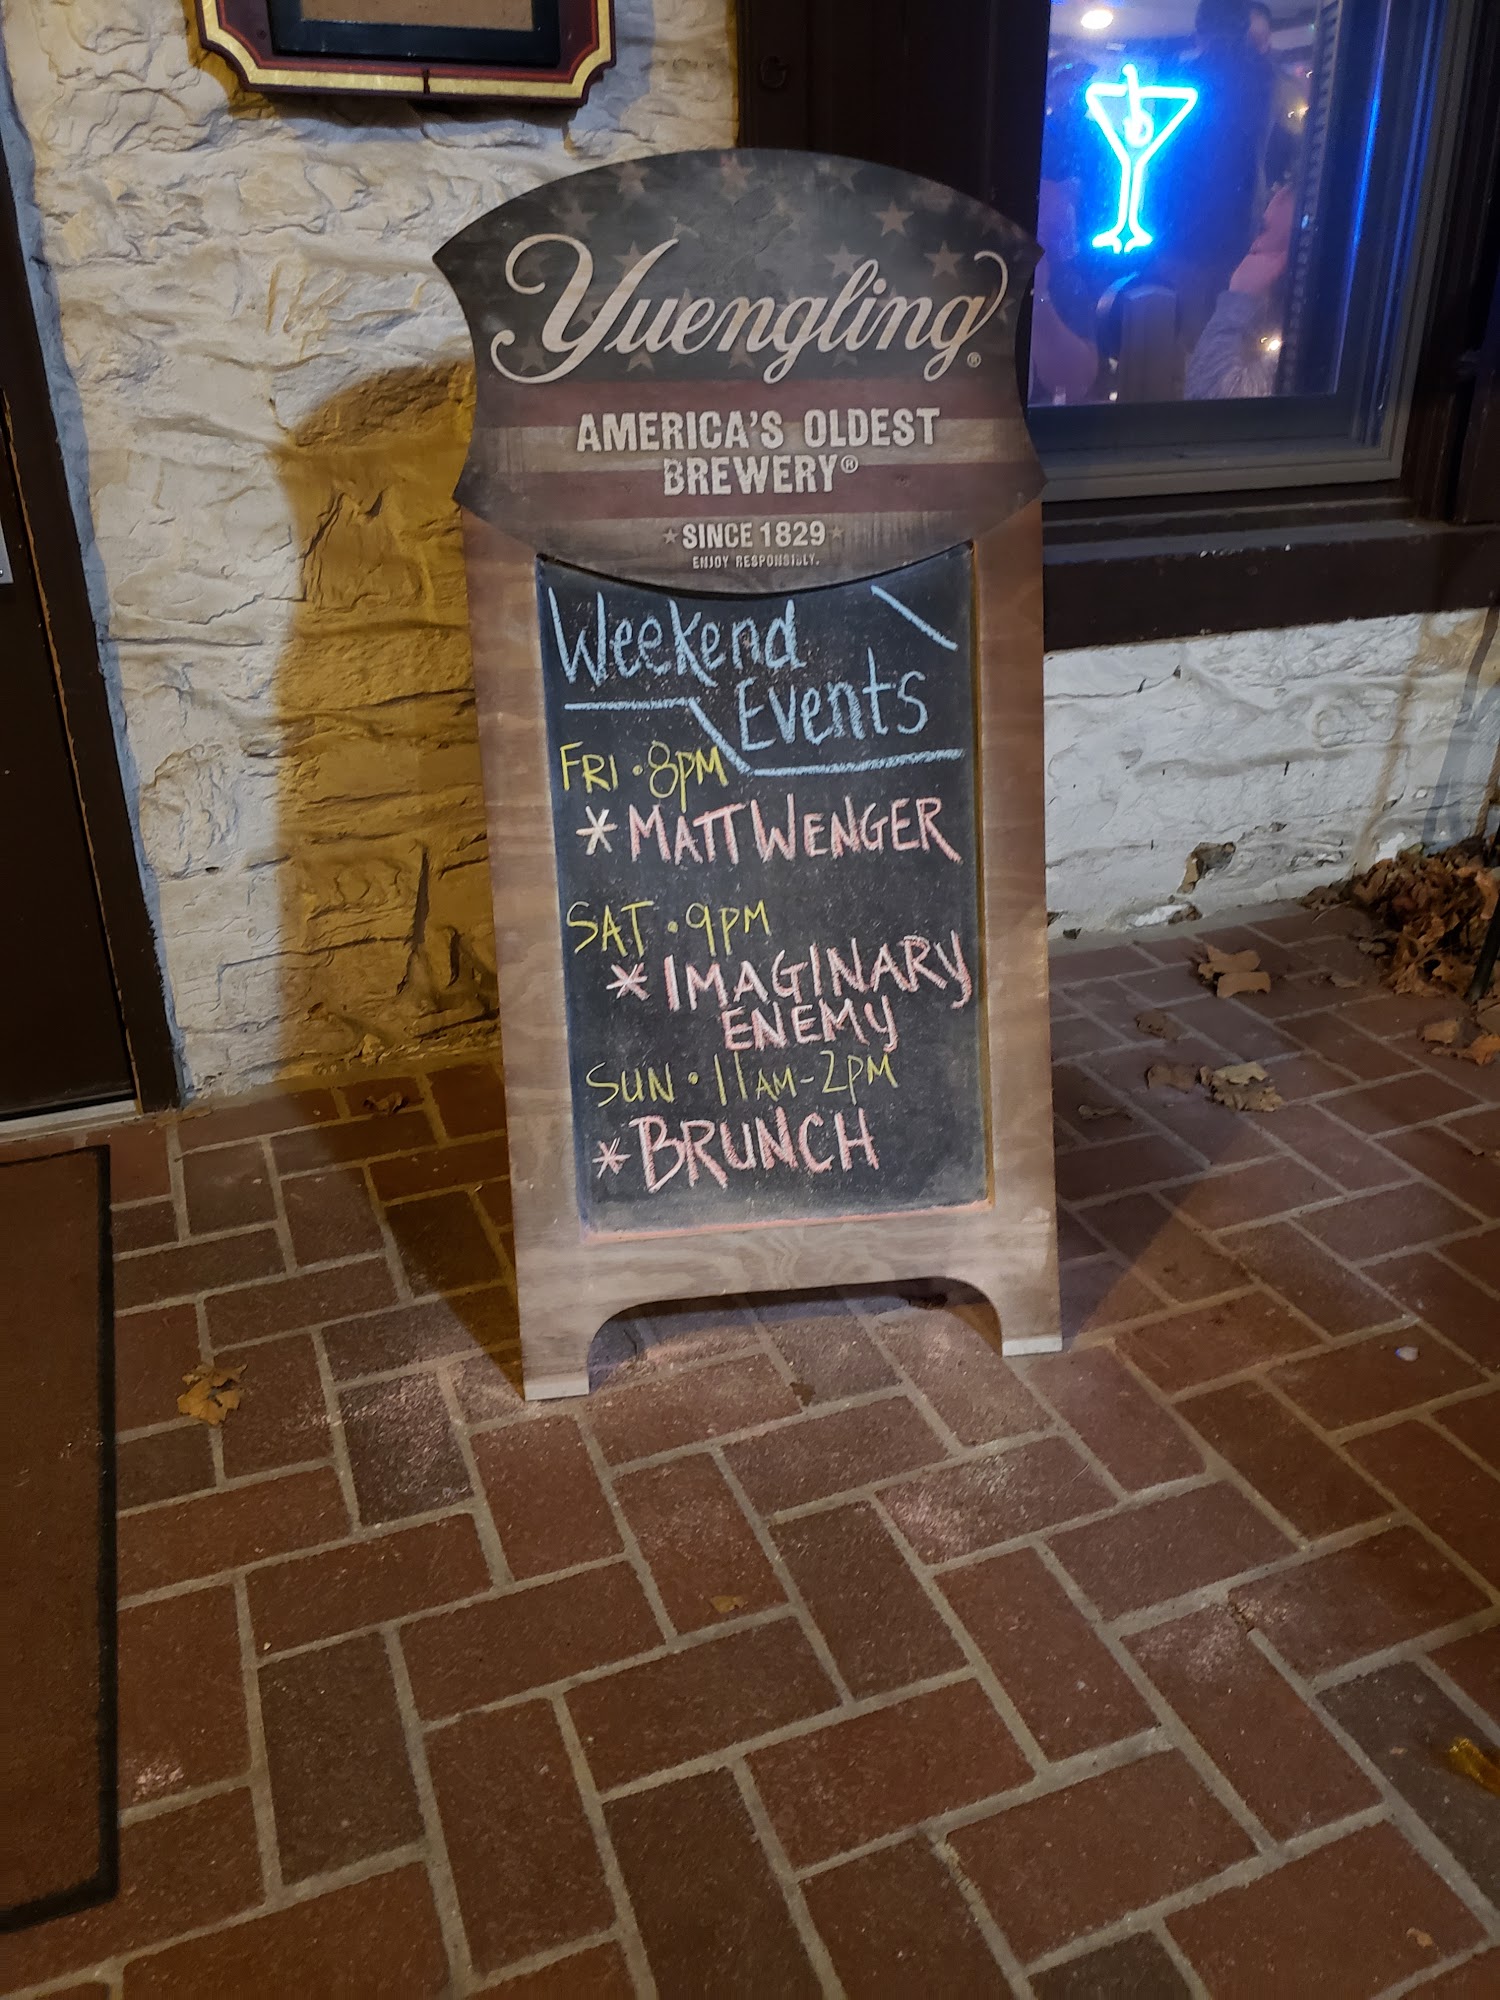 Yuengling®
AMERICA'S OLDEST
BREWERY®
★SINCE 1829★
ENJOY RESPONSIBLY.
Weekend
Events
FRI • 8PM
* MATT WENGER
SAT • 9PM
* IMAGINARY
ENEMY
SUN • 11AM-2PM
* BRUNCH